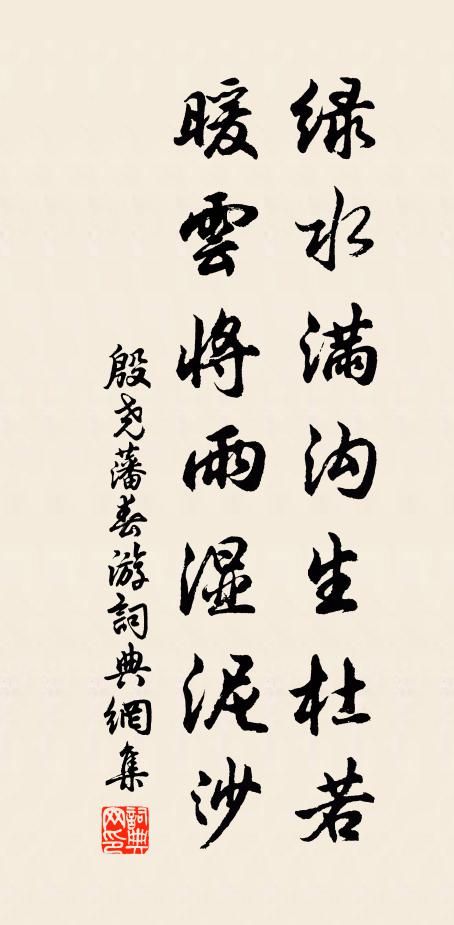 绿水满沟生杜若
暖雲将雨湿泥沙
殷尧藩春游詞典網集
詞典
网印